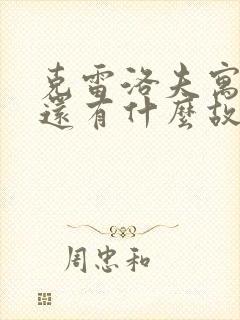 克雷洛夫寓
還有什麼故
周忠和